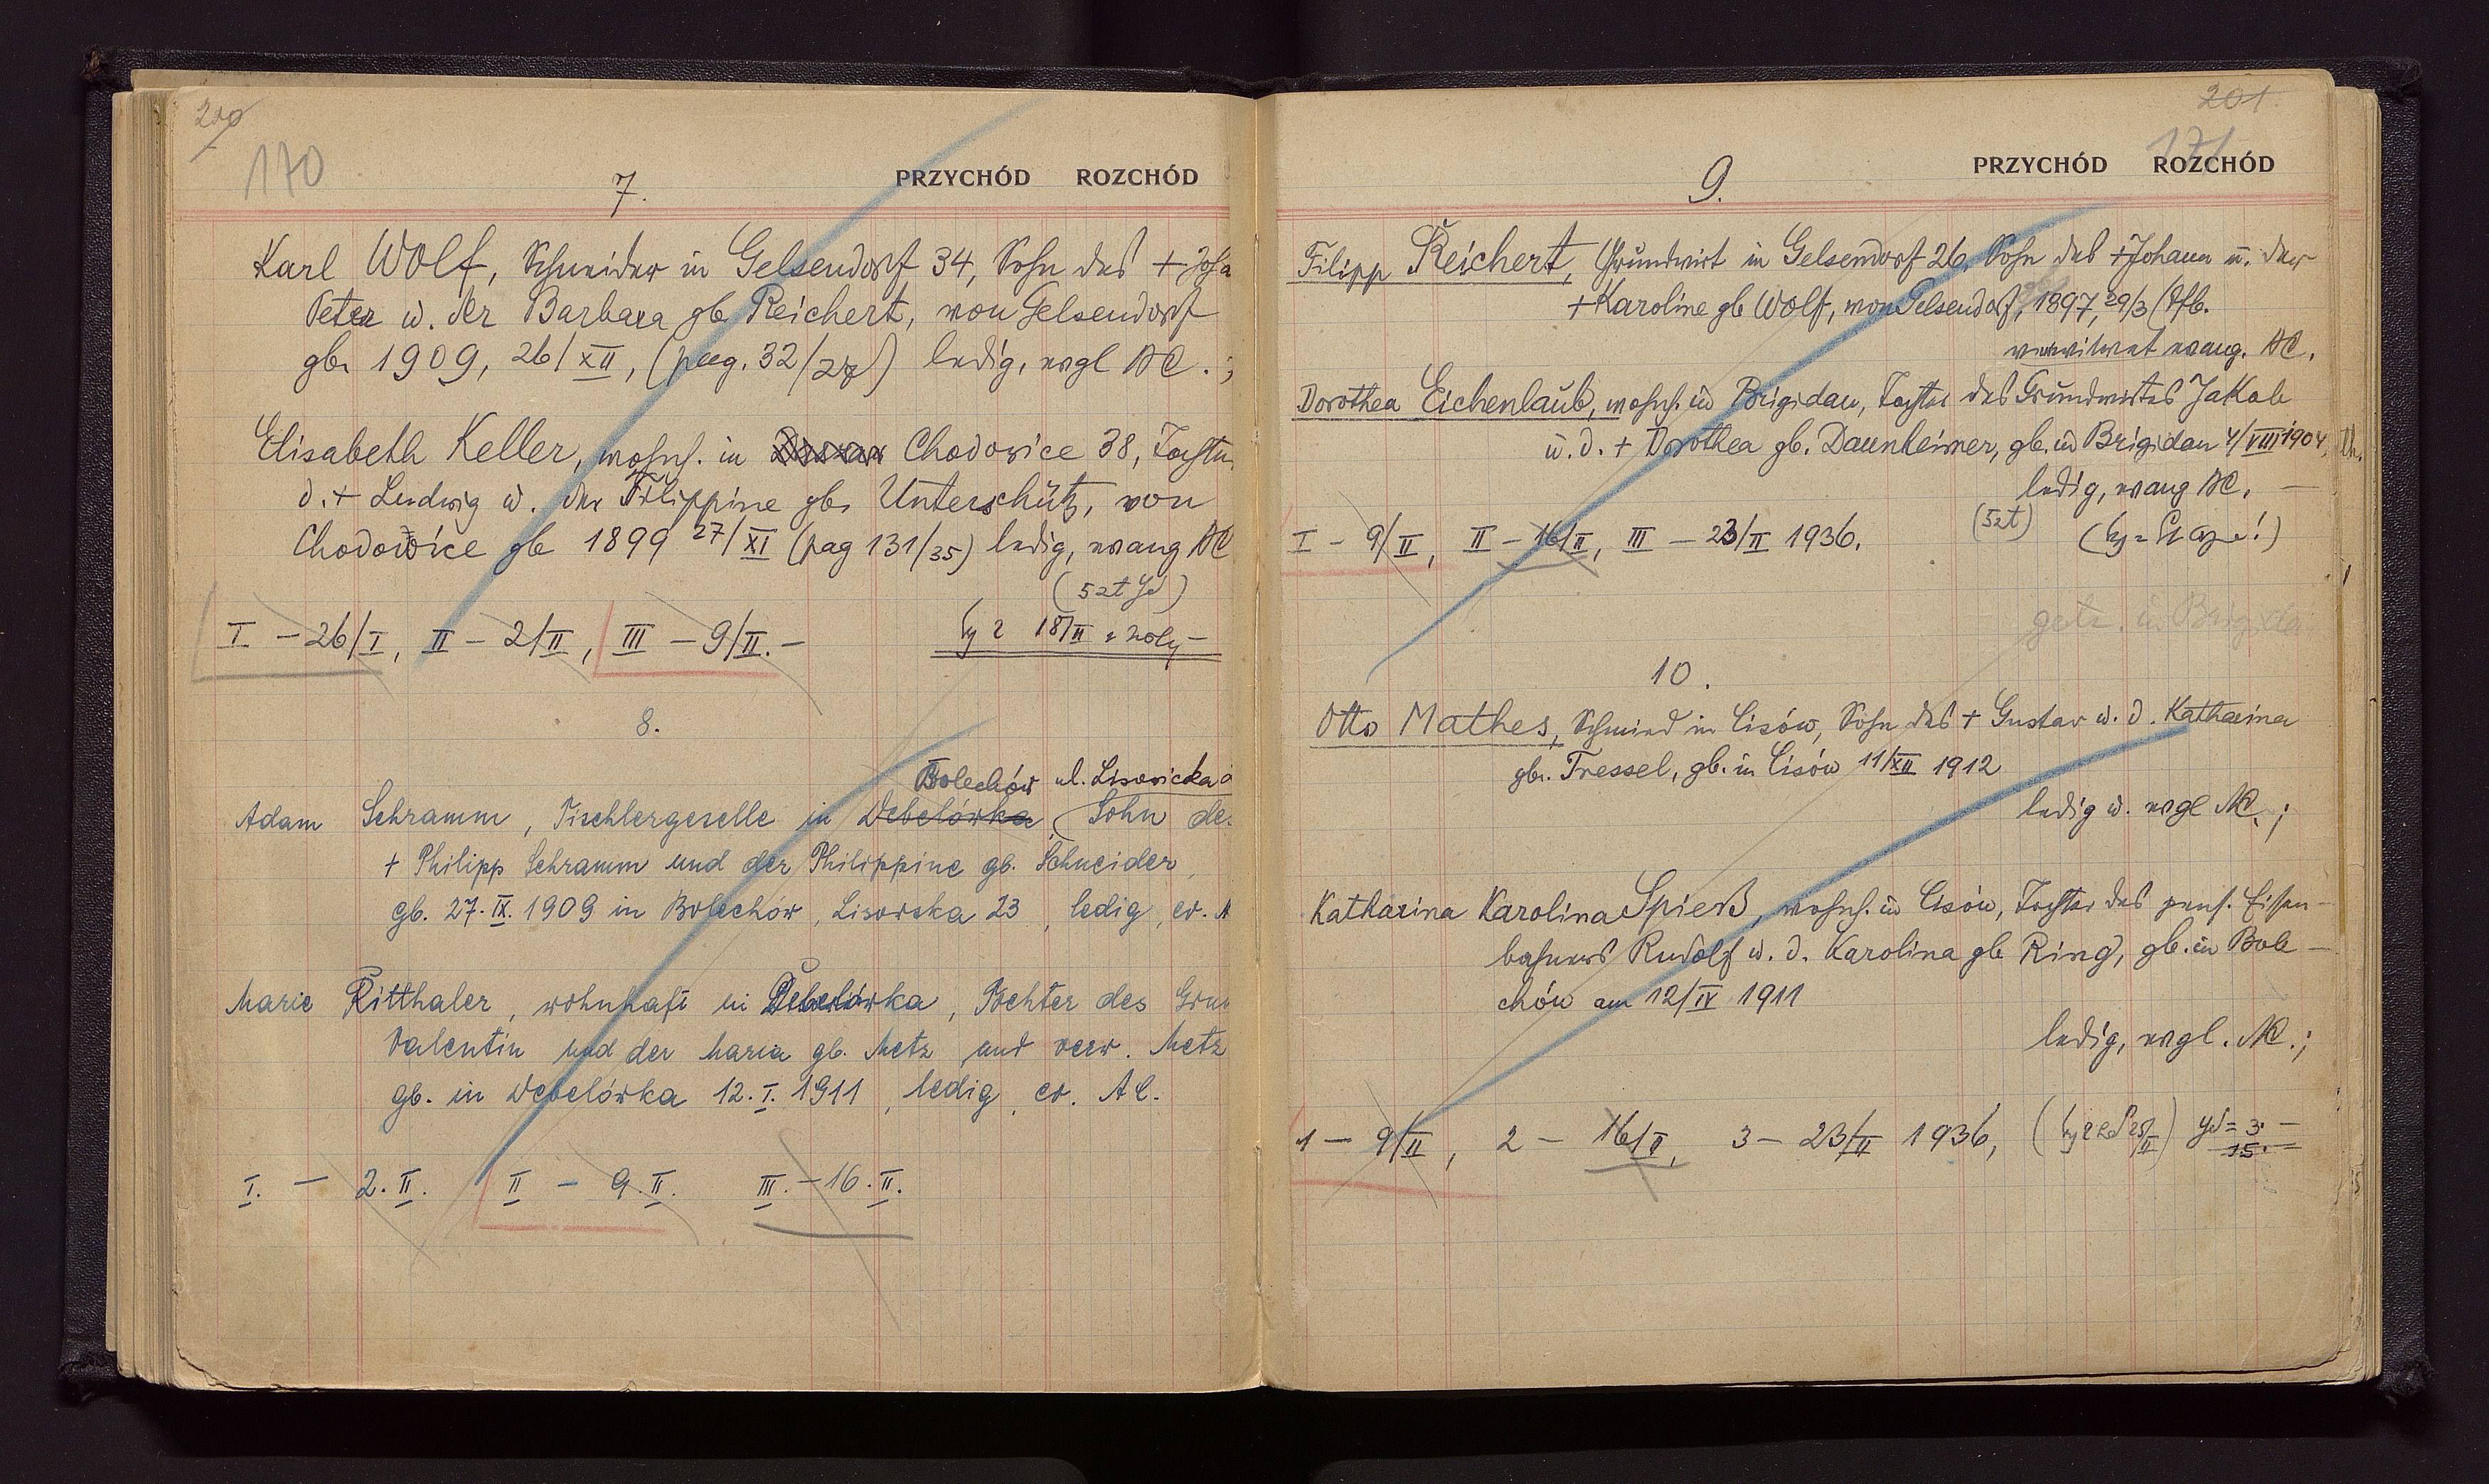 200
170
7.
PRZYCHÓD ROZCHÓD
Karl Wolf, Schneider in Gelsendorf 34, Sohn des + Joha
Peter u. der Barbara gb Reichert, von Gelsendorf
gb. 1909, 26/XII, (pag. 32/27) ledig, evgl AC.;
Elisabeth Keller, wohnh. in Chodowice 38, Tochter
d. + Ludwig u. der Filippine gb. Unterschütz, von
Chodowice gb 1899 27/XI (pag 131/35) ledig, evang AC
(5zt)
I - 26/I, II - 2/II, III - 9/II. -
18/II
8.
Bolechów ul. Lisowicka
Adam Schramm, Tischlergeselle in Debelówka, Sohn des
+ Philipp Schramm und der Philippine gb. Schneider,
gb. 27. IX. 1909 in Bolechów, Lisowska 23, ledig, ev. A
Marie Ritthaler, wohnhaft in Debelówka, Tochter des Grun
Valentin und der Maria gb. Metz und verw. Metz
gb. in Debelówka 12. I. 1911, ledig, ev. AC.
I. - 2. II. II - 9. II. III. - 16. II.
201
171
9.
PRZYCHÓD ROZCHÓD
Filipp Reichert, Grundwirt in Gelsendorf 26, Sohn des + Johann u. der
+ Karoline gb Wolf, von Gelsendorf, 1897, 29/3
verwitwet evang. AC.
Dorothea Eichenlaub, wohnh. in Brigidau, Tochter des Grundwirtes Jakob
u. d. + Dorothea gb. Daunheimer, gb. in Brigidau 4/VIII 1904,
ledig, evang AC. -
I - 9/II, II - 16/II, III - 23/II 1936. (5zt)
getr. in Brigida
10.
Otto Mathes, Schmied in Lisów, Sohn des + Gustav u. d. Katharina
gb. Tressel, gb. in Lisów 11/XII 1912
ledig u. evgl AC.;
Katharina Karolina Spieß, wohnh. in Lisów, Tochter des pens. Eisen-
bahners Rudolf u. d. Karolina gb Ring, gb. in Bole-
chów am 12/IV 1911
ledig, evgl. AC.;
1 - 9/II, 2 - 16/II, 3 - 23/II 1936,